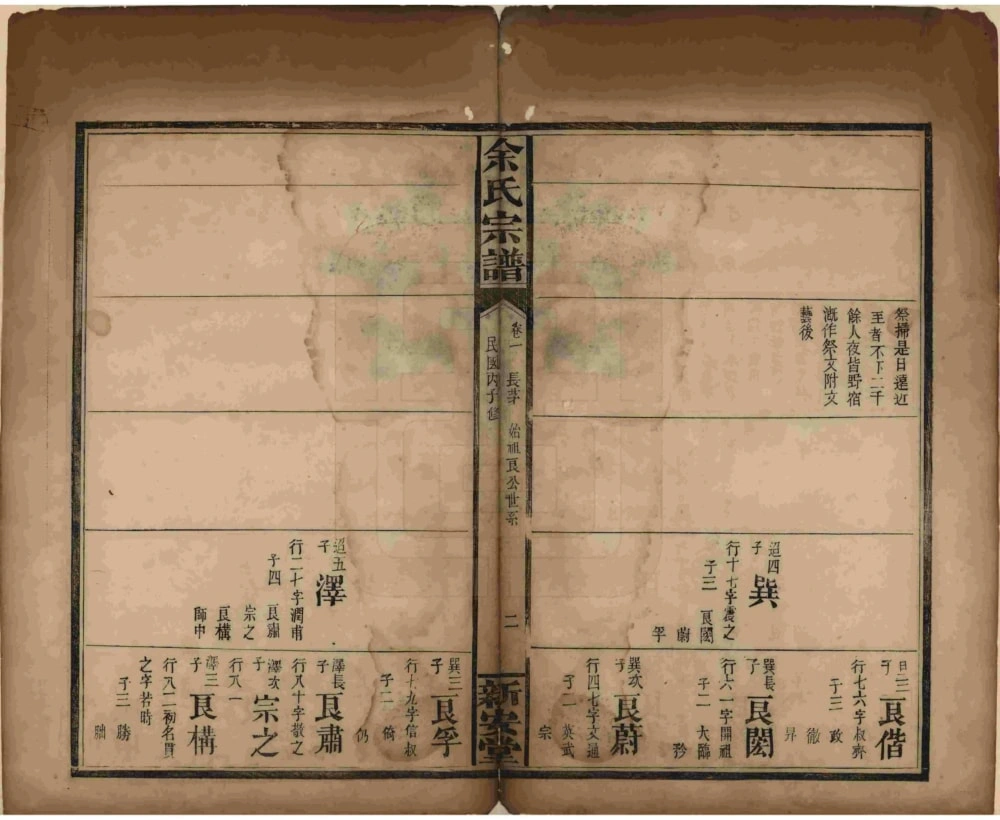 祭掃是日遠近
至者不下二千
餘人夜皆野宿
漑作祭文附文
藝後
迢四
子
巽
行十七字震之
子三 良閎
蔚
孚
子
良偕
行七六字叔齊
子三 政
徹
昇
巽長
子
良閎
行六一字開祖
子二 大臨
巽次
子
良蔚
行四七字文通
子二 英武
宗
余氏宗譜
卷一 長芽 始祖良公世系 二
民國丙子修
新安堂
迢五
子
澤
行二十字潤甫
子四 良肅
宗之
良構
師中
巽三
子
良孚
行十九字信叔
子二 倚
仍
澤長
子
良肅
行八十字敬之
澤次
子
宗之
行八一
澤三
子
良構
行八二初名貫
之字若時
子三 勝
朏